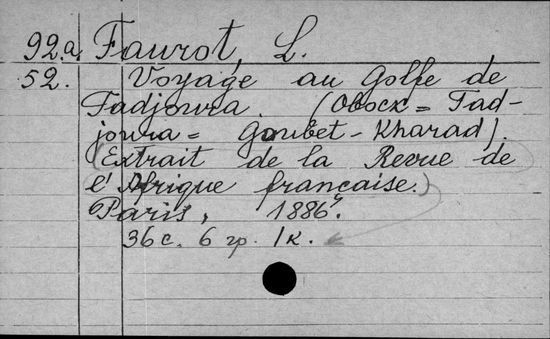 92.a. Faurot, L.
52. Voyage au Golfe de
Tadjoura (Obock = Tad-
joura = Goubet-Kharad).
(Extrait de la Revue de
l'Afrique française.)
Paris, 1886г.
36 с. 6 гр. 1 к.